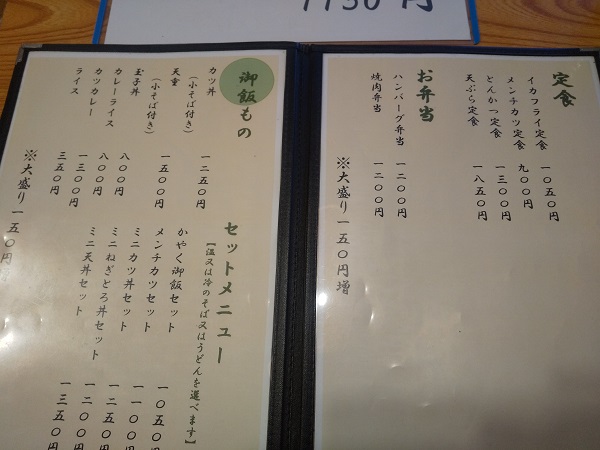 定食
イカフライ定食 一〇五〇円
メンチカツ定食 九〇〇円
とんかつ定食 一三〇〇円
天ぷら定食 一八五〇円
お弁当
ハンバーグ弁当 一二〇〇円
焼肉弁当 一二〇〇円
※大盛り一五〇円増
御飯もの
カツ丼 一二五〇円
(小そば付き)
天重 一五〇〇円
(小そば付き)
玉子丼 八〇〇円
カレーライス 八〇〇円
カツカレー 一三〇〇円
ライス 三五〇円
※大盛り一五〇円
セットメニュー
【温又は冷のそば又はうどんを選べます】
かやく御飯セット 一〇五〇
メンチカツセット 一一〇〇
ミニカツ丼セット 一二五〇
ミニねぎとろ丼セット 一二〇〇
ミニ天丼セット 一三五〇